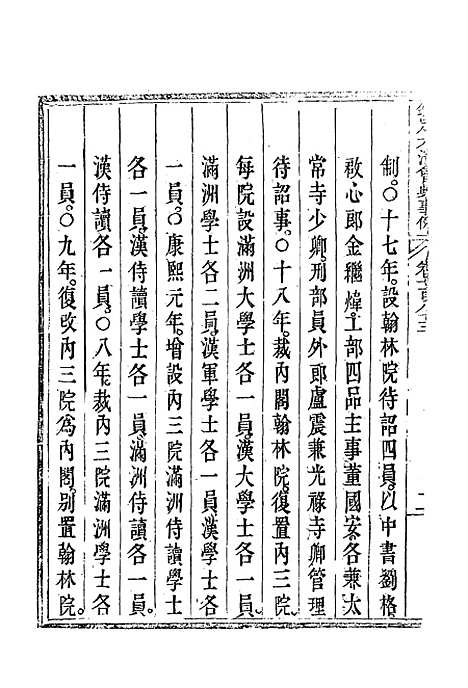 欽定大清會典事例
制。〇十七年。設翰林院待詔四員。以中書劉格
啟心郎金繼煒。工部四品主事董國案。各兼太
常寺少卿。刑部員外郎盧震兼光祿寺卿管理
待詔事。〇十八年。裁內閣翰林院。復置內三院。
每院設滿洲大學士各一員。漢大學士各一員。
滿洲學士各二員。漢軍學士各一員。漢學士各
一員。〇康熙元年。增設內三院滿洲侍讀學士
各一員。漢侍讀學士各一員。滿洲侍讀各一員。
漢侍讀各一員。〇八年。裁內三院滿洲學士各
一員。〇九年。復改內三院爲內閣。別置翰林院。